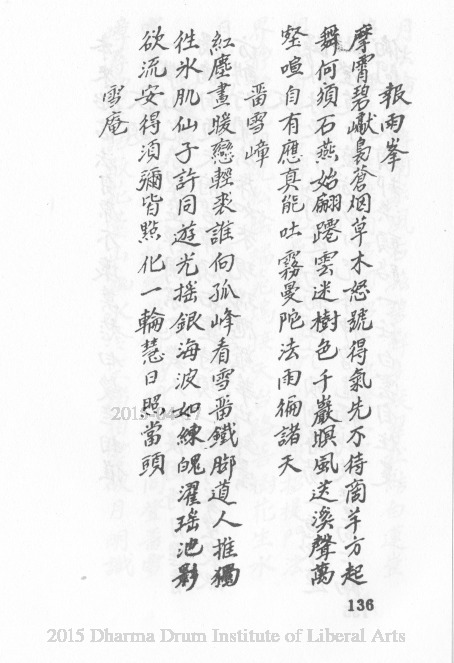 報雨峯
摩霄碧巘裊蒼烟草木怒號得氣先不待商羊方起
舞何須石燕始翩躚雲迷樹色千巖暝風送溪聲萬
壑喧自有應真能吐霧曼陀法雨徧諸天
畨雪嶂
紅塵晝暖戀輕裘誰向孤峰看雪畨鐵脚道人推獨
徃氷肌仙子許同遊光搖銀海波如練魄濯瑤池影
欲流安得湏彌皆點化一輪慧日照當頭
雪庵
136
2015 Dharma Drum Institute of Liberal Arts